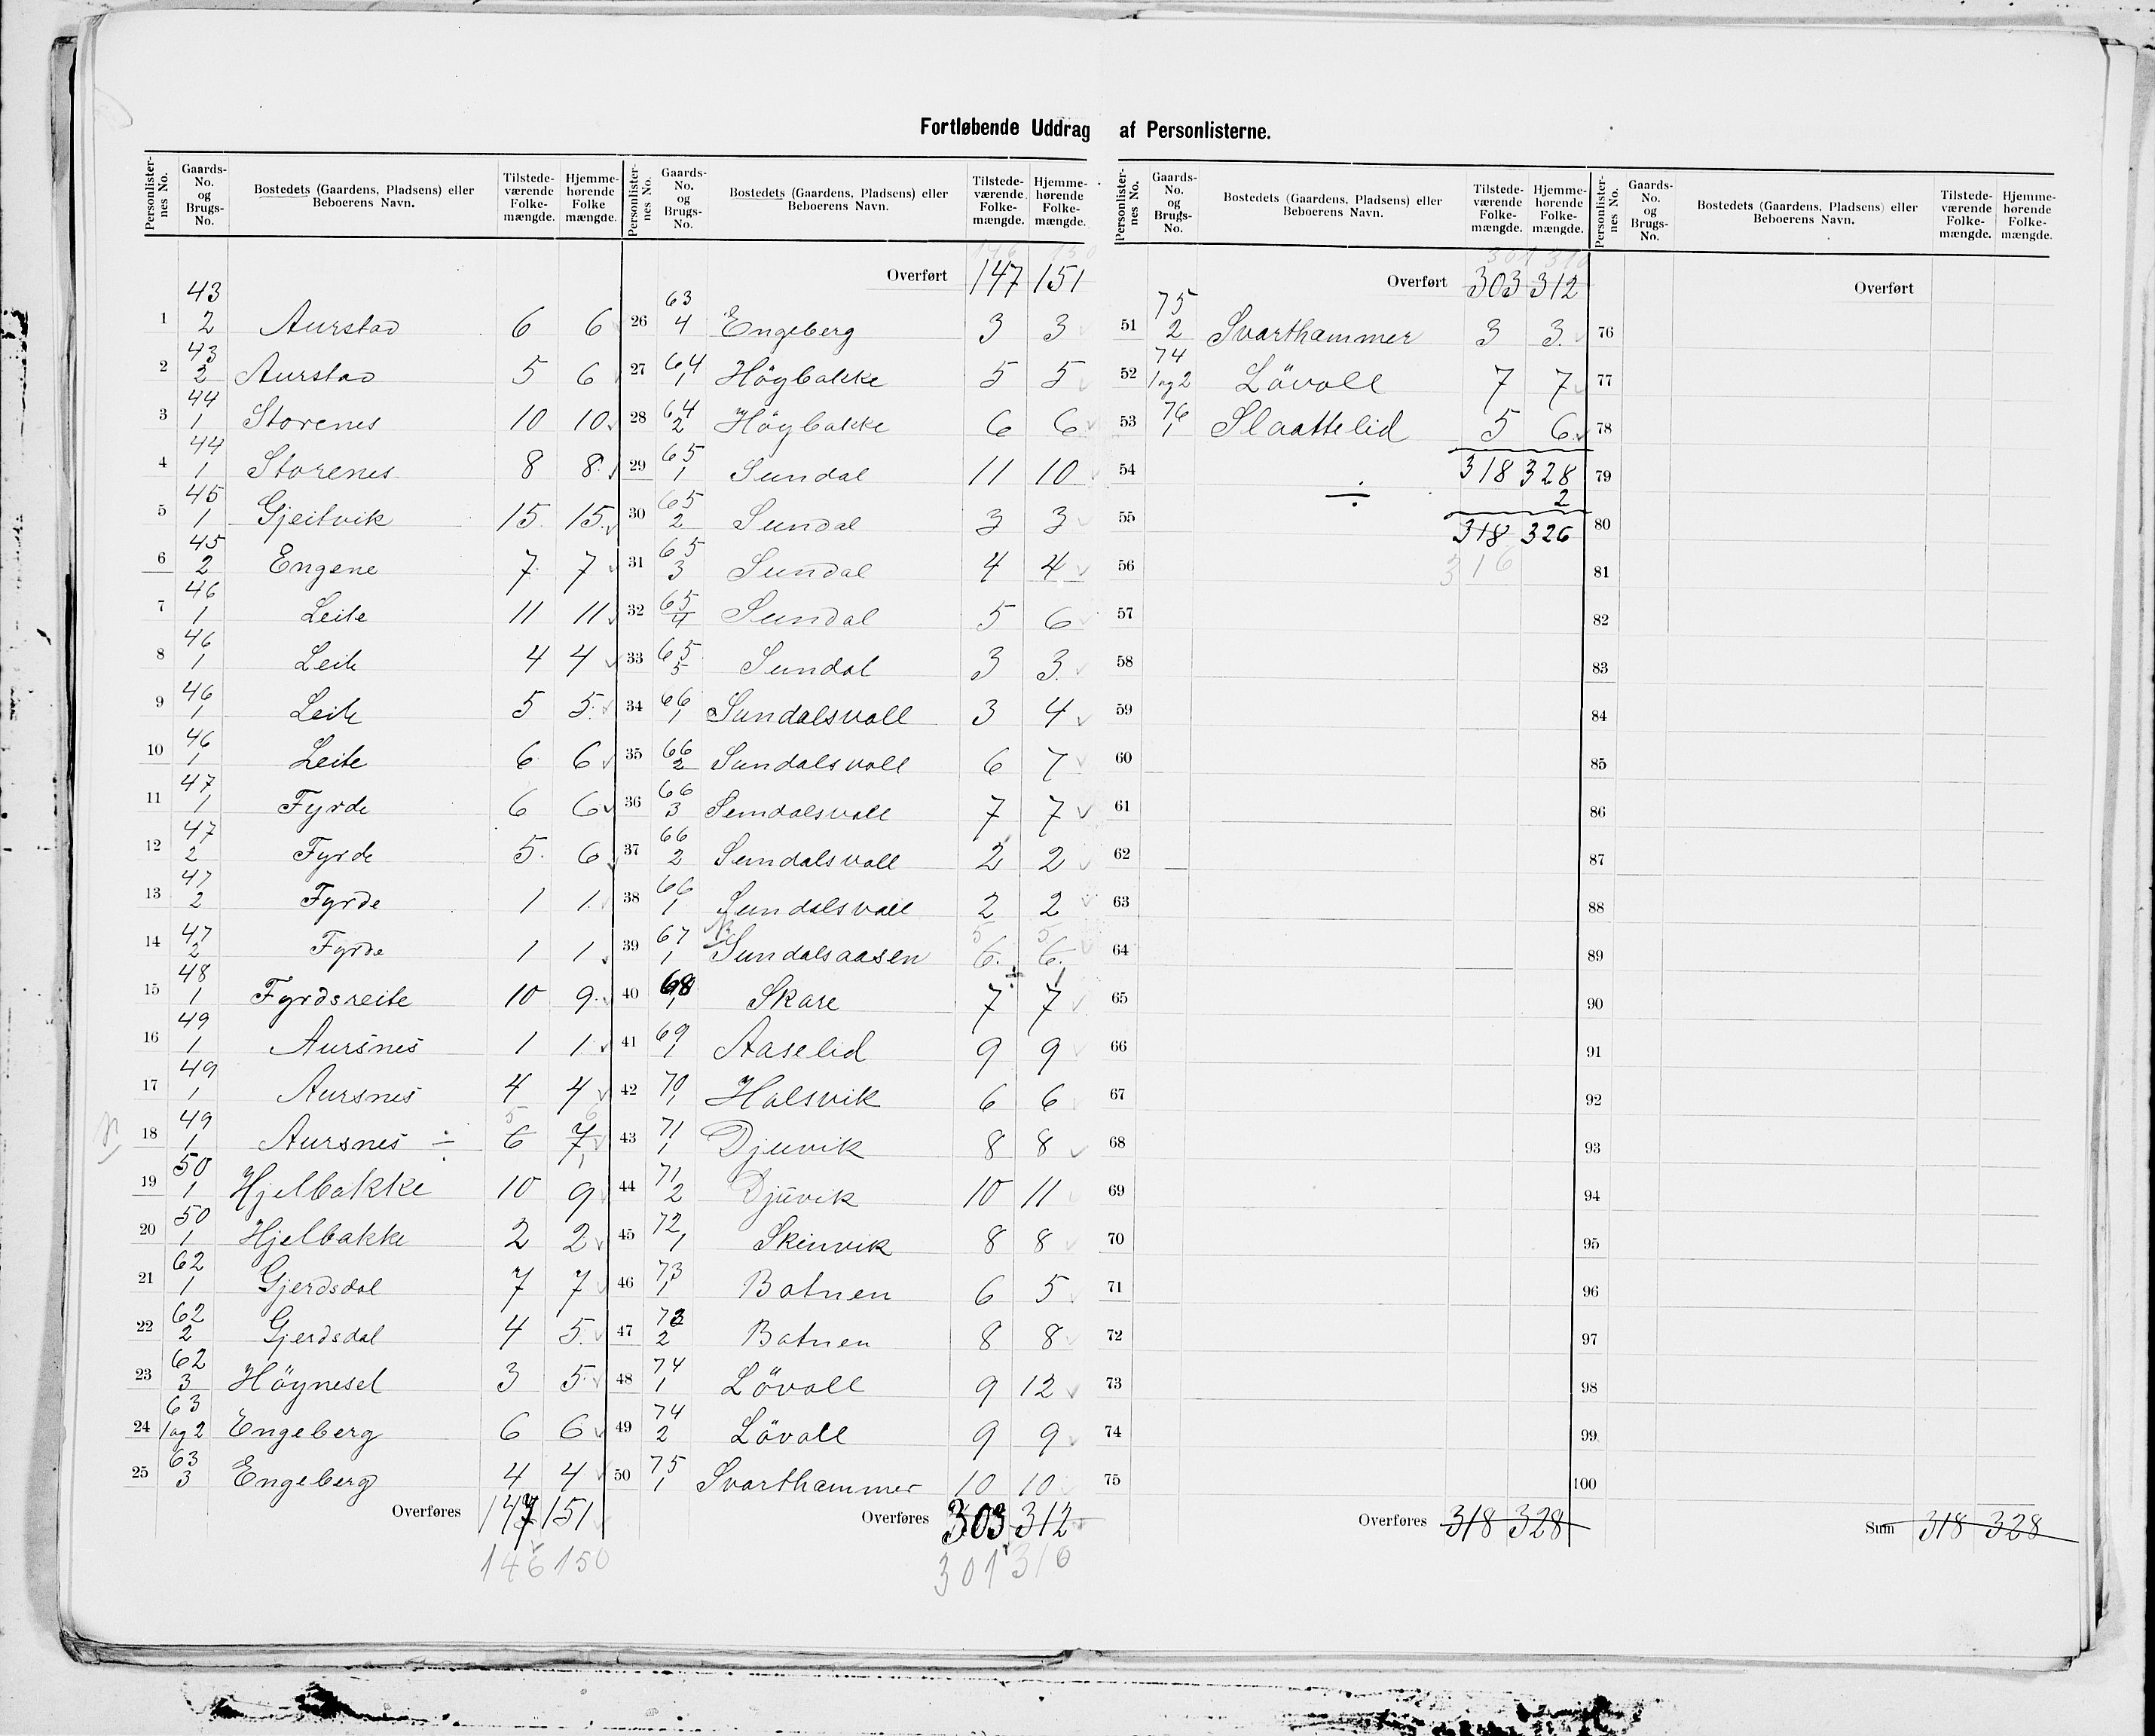 Fortløbende Uddrag af Personlisterne.
Personlister-nes No. | Gaards-No. og Brugs-No. | Bostedets (Gaardens, Pladsens) eller Beboerens Navn. | Tilstede-værende Folke-mængde. | Hjemme-hørende Folke mængde.
1 43 2 Aurstad 6 6
2 43 2 Aurstad 5 6
3 44 1 Storenes 10 10
4 44 1 Storenes 8 8
5 45 1 Gjeitvik 15 15
6 45 2 Engene 7 7
7 46 1 Leite 11 11
8 46 1 Leite 4 4
9 46 1 Leite 5 5
10 46 1 Leite 6 6
11 47 1 Fyrde 6 6
12 47 2 Fyrde 5 6
13 47 2 Fyrde 1 1
14 47 2 Fyrde 1 1
15 48 1 Fyrdsreite 10 9
16 49 1 Aursnes 1 1
17 49 1 Aursnes 4 4
18 49 1 Aursnes ÷ 6 5 7 6
19 50 1 Hjelbakke 10 9
20 50 1 Hjelbakke 2 2
21 62 1 Gjerdsdal 7 7
22 62 2 Gjerdsdal 4 5
23 62 3 Höyneset 3 5
24 63 1 og 2 Engeberg 6 6
25 63 3 Engeberg 4 4
Overføres 147 151
146 150
Personlister-nes No. | Gaards-No. og Brugs-No. | Bostedets (Gaardens, Pladsens) eller Beboerens Navn. | Tilstede-værende Folke-mængde. | Hjemme-hørende Folke-mængde.
146 150
Overført 147 151
26 63 4 Engeberg 3 3
27 64 1 Höybakke 5 5
28 64 2 Höybakke 6 6
29 65 1 Sundal 11 10
30 65 2 Sundal 3 3
31 65 3 Sundal 4 4
32 65 4 Sundal 5 6
33 65 5 Sundal 3 3
34 66 1 Sundalsvoll 3 4
35 66 2 Sundalsvoll 6 7
36 66 3 Sundalsvoll 7 7
37 66 2 Sundalsvoll 2 2
38 66 1 Sundalsvoll 2 2
39 67 1 Sundalsaasen 6 5 6 5
40 68 1 Skare 7 7
41 69 1 Aaselid 9 9
42 70 1 Halsvik 6 6
43 71 1 Djuvik 8 8
44 71 2 Djuvik 10 11
45 72 1 Skinvik 8 8
46 73 1 Botnen 6 5
47 73 2 Botnen 8 8
48 74 1 Lövoll 9 12
49 74 2 Lövoll 9 9
50 75 1 Svarthammer 10 10
Overføres 303 312
301 310
Personlister-nes No. | Gaards-No. og Brugs-No. | Bostedets (Gaardens, Pladsens) eller Beboerens Navn. | Tilstede-værende Folke-mængde. | Hjemme-hørende Folke-mængde.
301 310
Overført 303 312
51 75 2 Svarthammer 3 3
52 74 1 og 2 Lövoll 7 7
53 76 1 Slaattelid 5 6
54 318 328
÷ 2
55 318 326
56 316
57
58
59
60
61
62
63
64
65
66
67
68
69
70
71
72
73
74
75
Overføres 318 328
Personlister-nes No. | Gaards-No. og Brugs-No. | Bostedets (Gaardens, Pladsens) eller Beboerens Navn. | Tilstede-værende Folke-mængde. | Hjemme-hørende Folke-mængde.
Overført
76
77
78
79
80
81
82
83
84
85
86
87
88
89
90
91
92
93
94
95
96
97
98
99
100
Sum 318 328